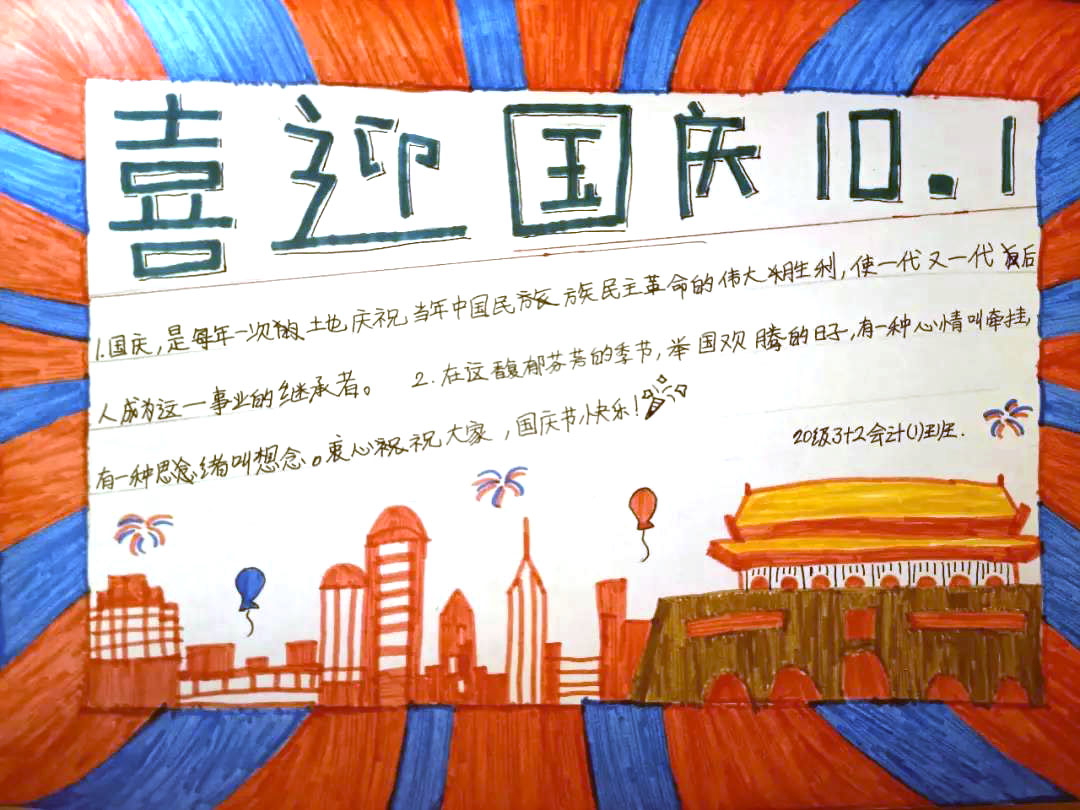 喜迎国庆10.1
1.国庆,是每年一次的土地庆祝当年中国民族族民主革命的伟大胜利,使一代又一代后
人成为这一事业的继承者。 2.在这馥郁芬芳的季节,举国欢腾的日子,有一种心情叫牵挂,
有一种思念绪叫想念。衷心祝祝大家,国庆节快乐!
20级3+2会计(1)班